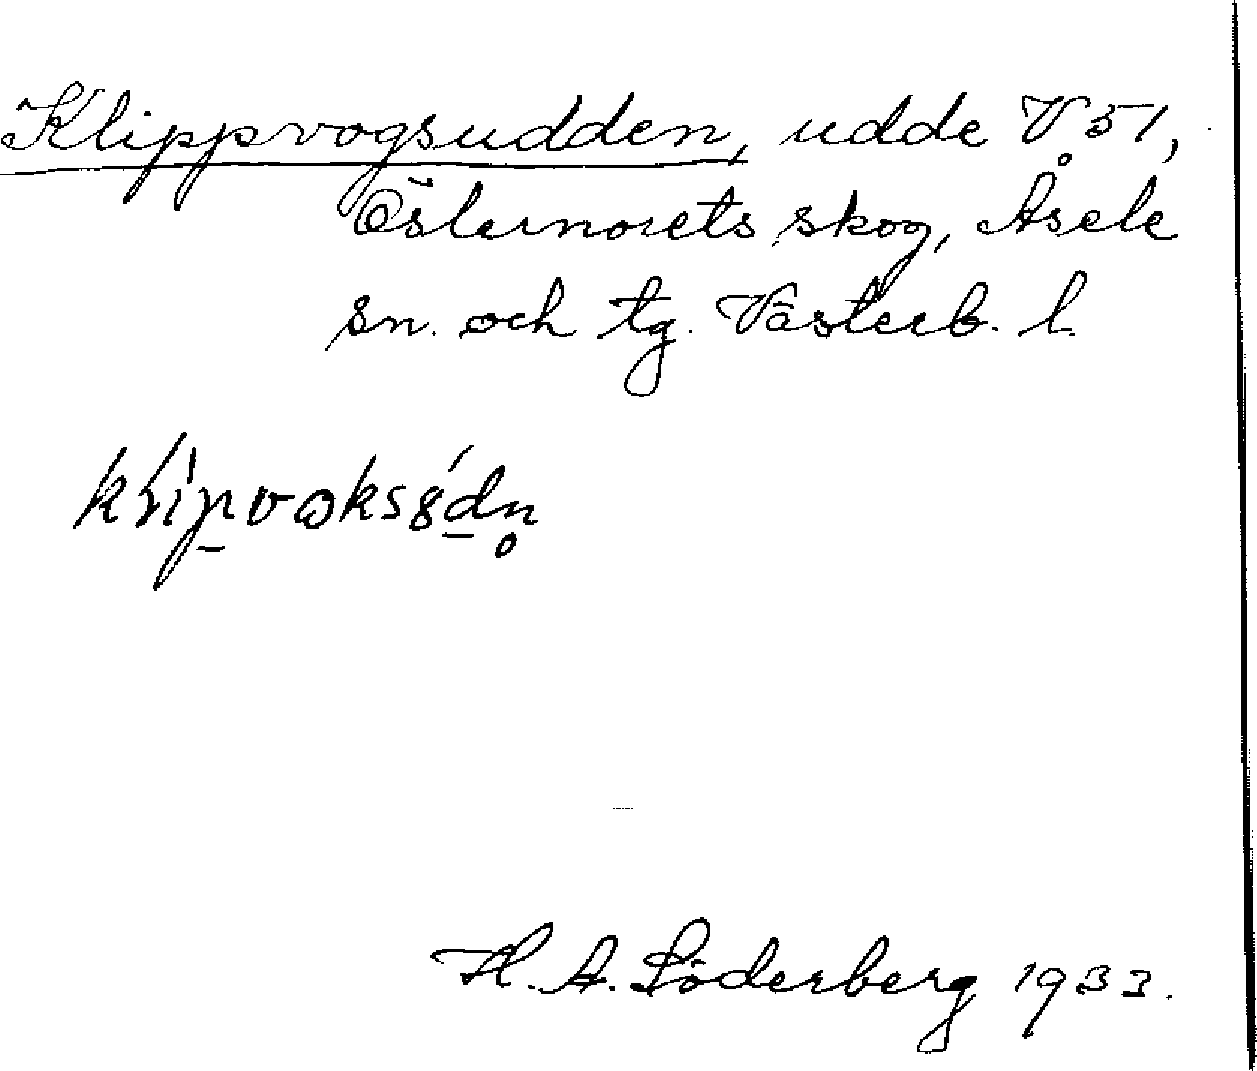 Klippvogsudden, udde V 51,
Östernorets skog, Åsele
sn. och tg. Västerb. l.
H. A. Söderberg 1933.